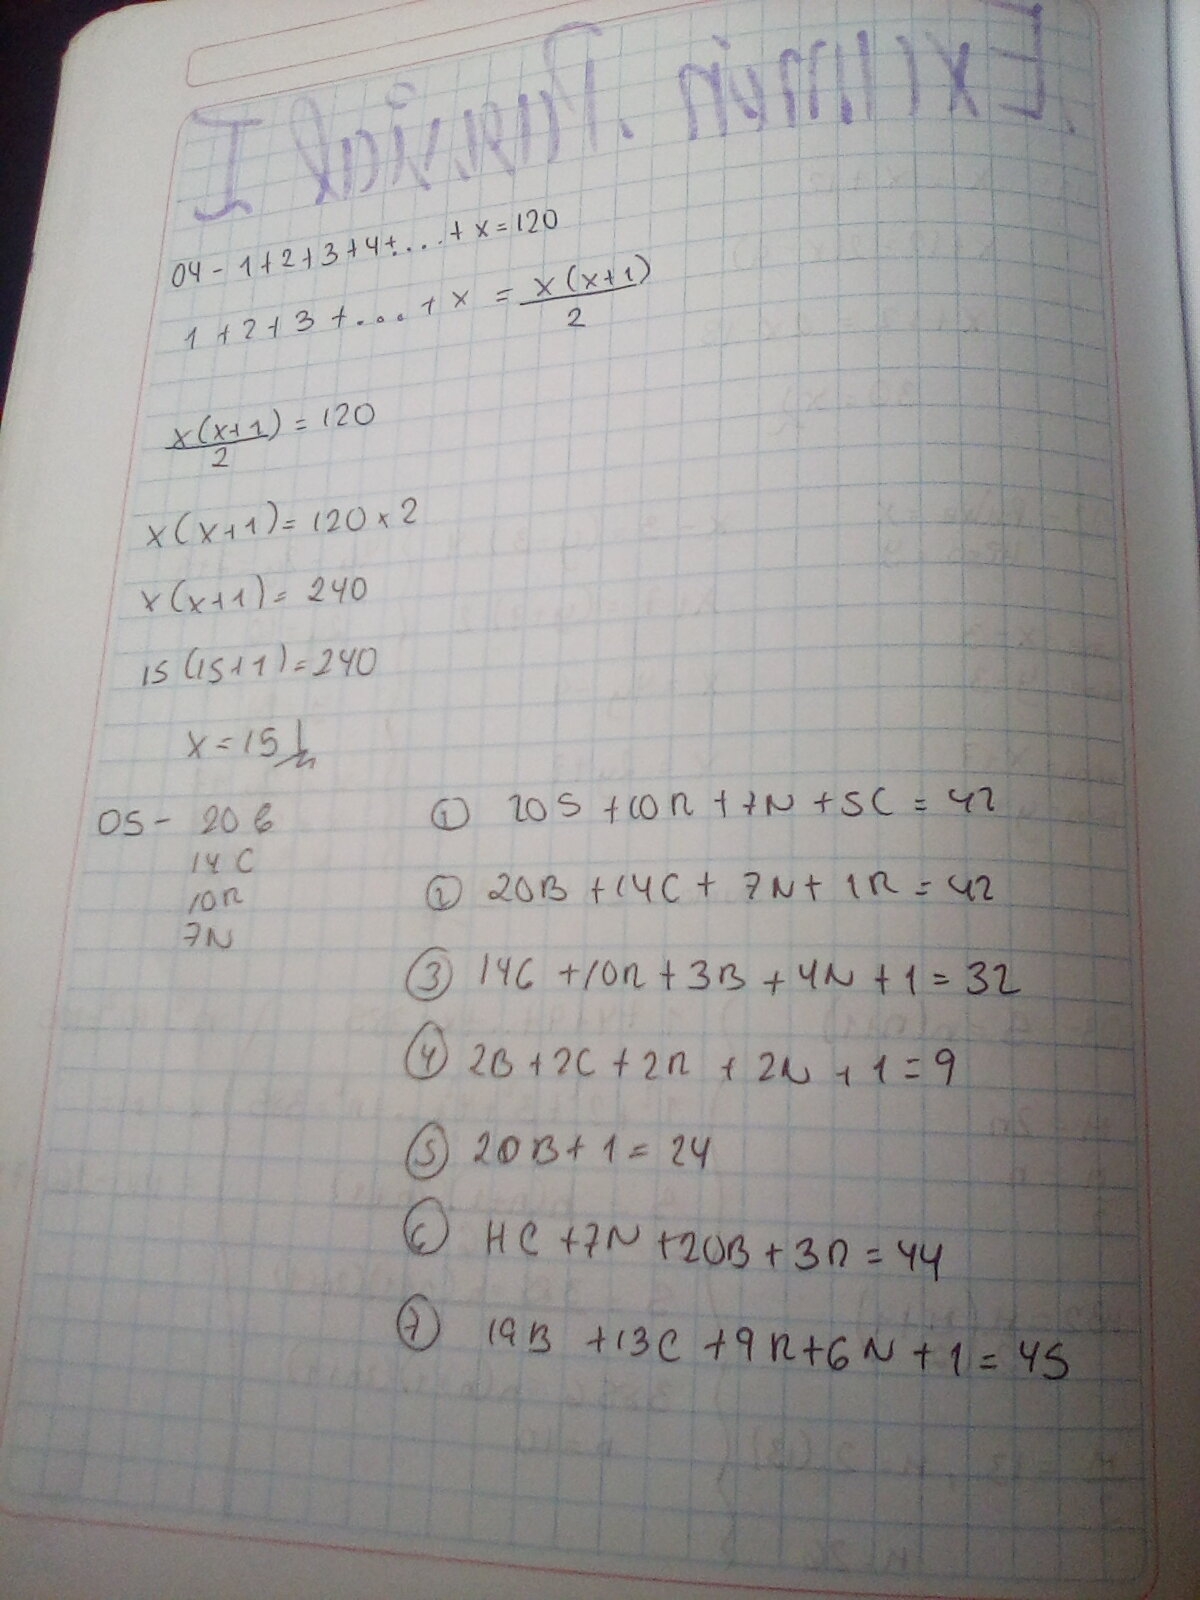 Examen Parcial I
04 - 1+2+3+4+...+ x = 120
1+2+3+...+ x = x(x+1)/2
x(x+1)/2 = 120
x(x+1) = 120 x 2
x(x+1) = 240
15(15+1) = 240
x = 15
05 - 20B
14C
10R
7N
① 20S + 10R + 7N + 5C = 42
② 20B + 14C + 7N + 1R = 42
③ 14C + 10R + 3B + 4N + 1 = 32
④ 2B + 2C + 2R + 2N + 1 = 9
⑤ 20B + 1 = 24
⑥ 14C + 7N + 20B + 3R = 44
⑦ 19B + 13C + 9R + 6N + 1 = 45